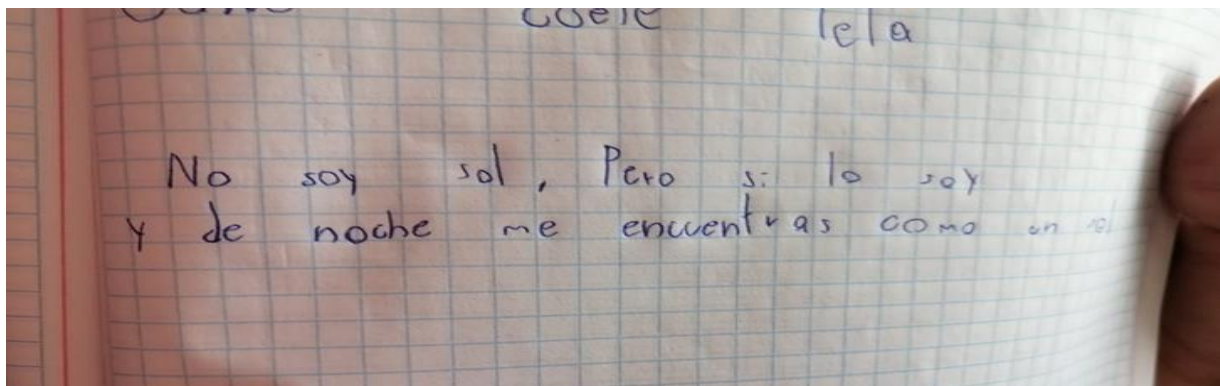 coele lela
No soy sol, Pero si lo soy
y de noche me encuentras como un sol